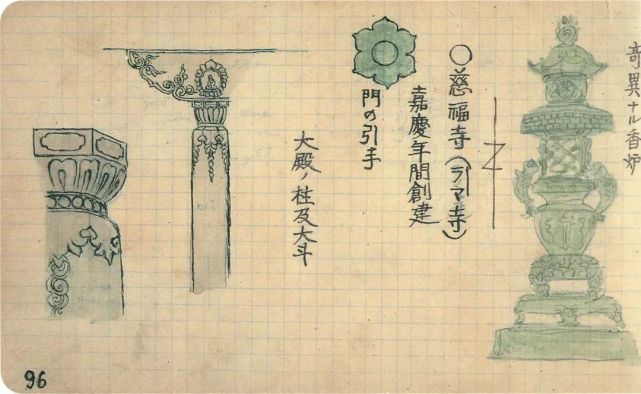 奇異ナル香炉
○慈福寺(ラマ寺)
嘉慶年間創建
門の引手
大殿ノ柱及大斗
96